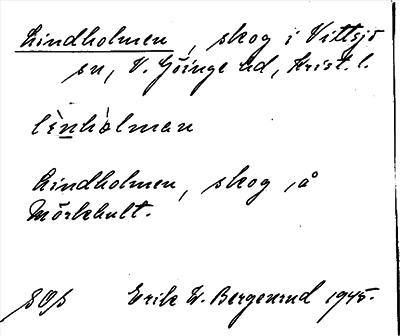 Lindholmen, skog i Vittsjö
sn, V. Göinge hd, Krist. l.
lìnhàlman
Lindholmen, skog, å
Mörkhult.
Erik W. Bergenrud 1945.